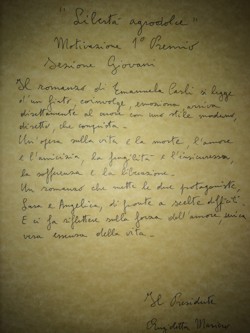 "Libertà agrodolce"
Motivazione 1° Premio
Sezione Giovani
Il romanzo di Emanuela Carli si legge
d'un fiato, coinvolge, emoziona, arriva
direttamente al cuore con uno stile moderno,
diretto, che conquista.
Un'opera sulla vita e la morte, l'amore
e l'amicizia, la fragilità e l'insicurezza,
la sofferenza e la liberazione.
Un romanzo che mette le due protagoniste,
Sara e Angelica, di fronte a scelte difficili
E ci fa riflettere sulla forza dell'amore, unica
vera essenza della vita.
Il Presidente